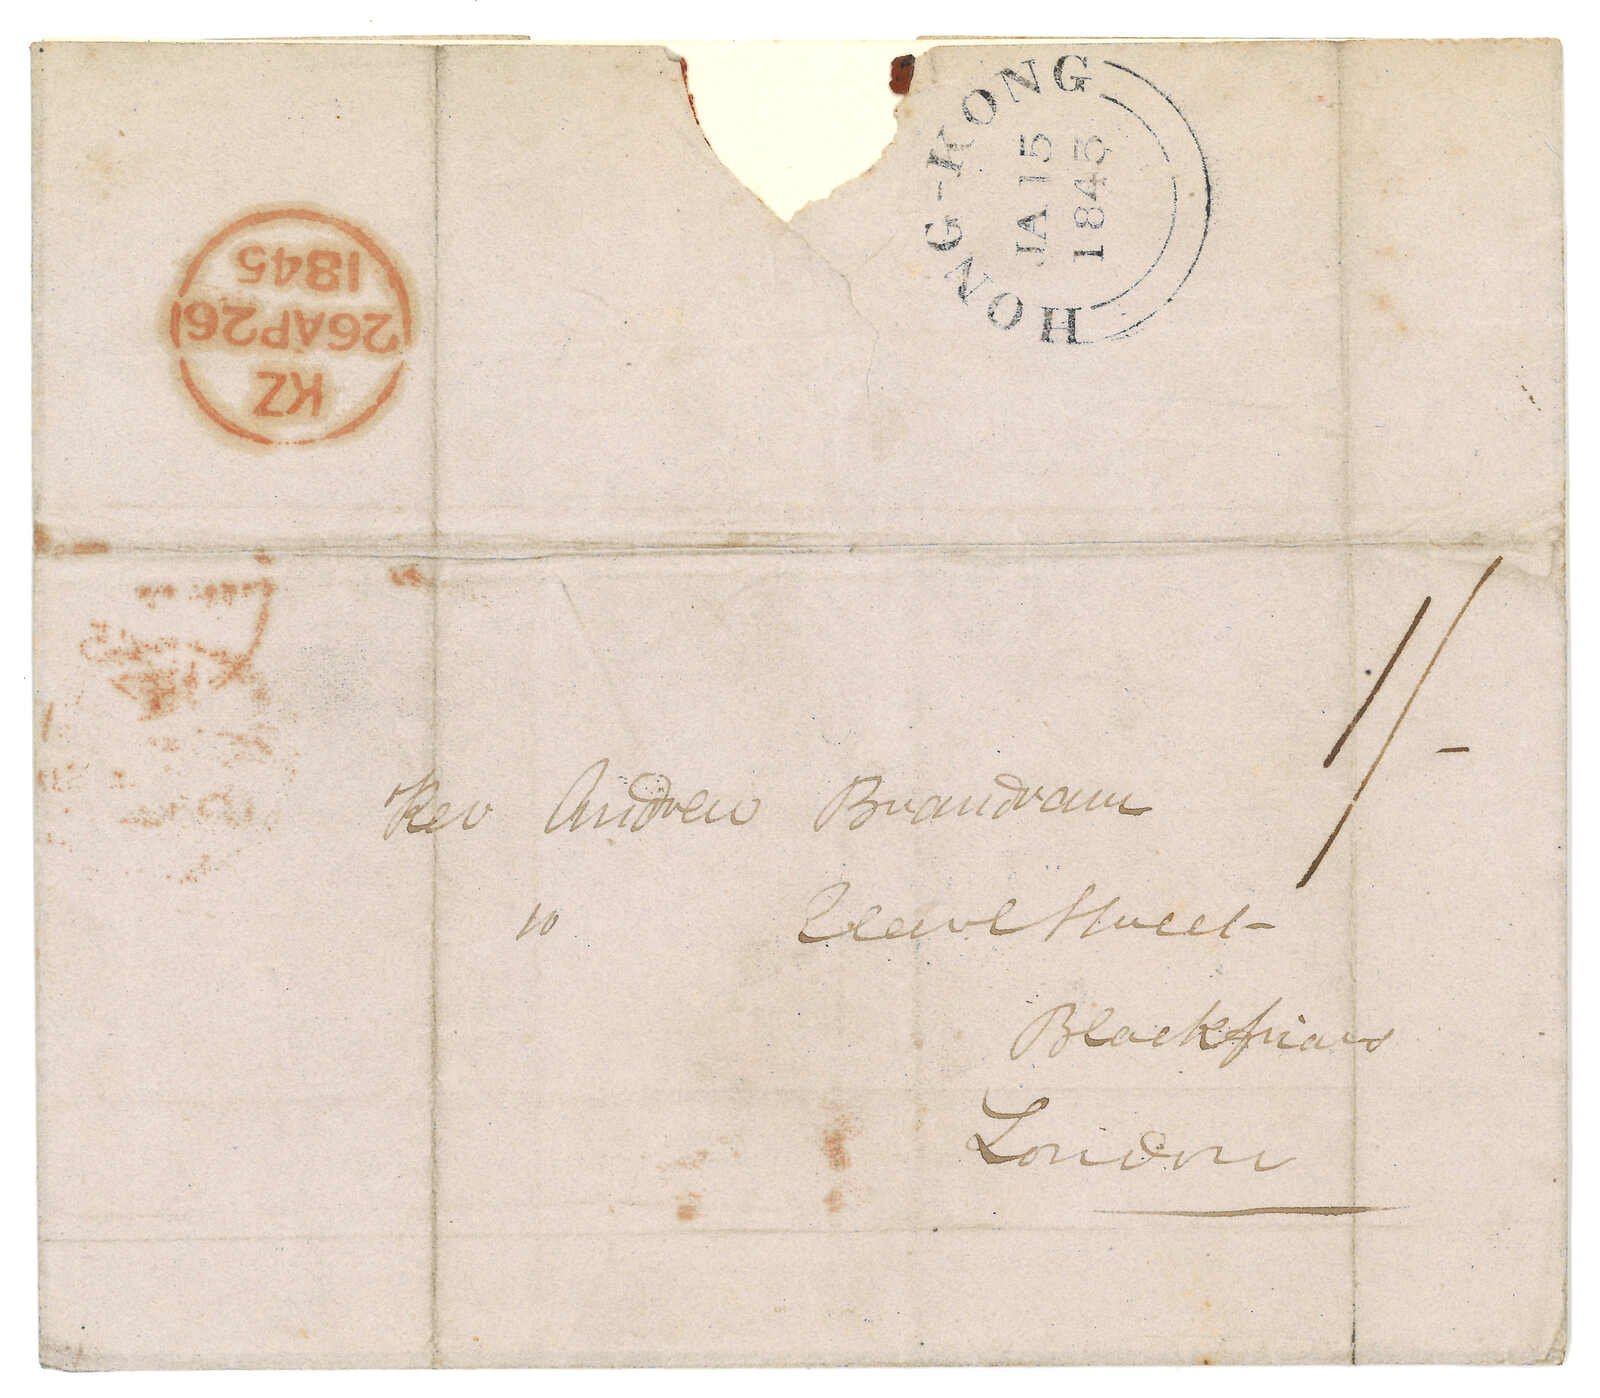 HONG-KONG
JA 15
1845
KZ
26AP26
1845
1/-
Rev Andrew Brandram
10 Street
Blackfriars
London